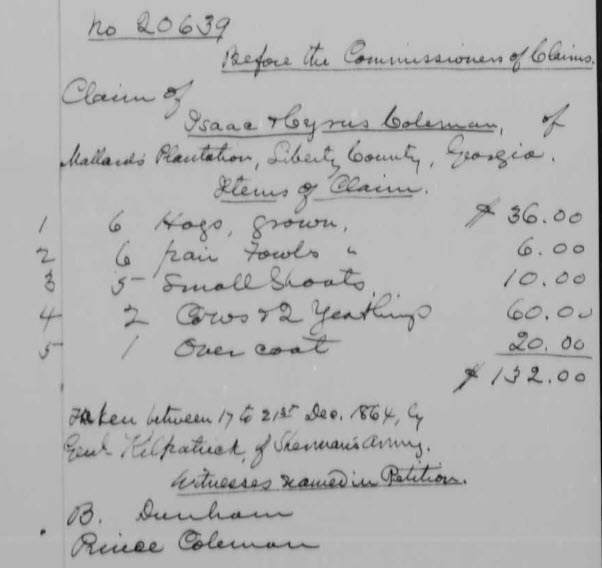 No 20639
Before the Commissioners of Claims.
Claim of
Isaac & Cyrus Coleman, of
Mallard's Plantation, Liberty County, Georgia.
Items of Claim.
1 6 Hogs, grown, $36.00
2 6 pair Fowls " 6.00
3 5 Small Shoats 10.00
4 2 Cows & 2 Yearlings 60.00
5 1 Over coat 20.00
$132.00
Taken between 17 to 21st Dec. 1864, by
Genl Kilpatrick, of Sherman's Army.
Witnesses named in Petition.
B. Dunham
Prince Coleman